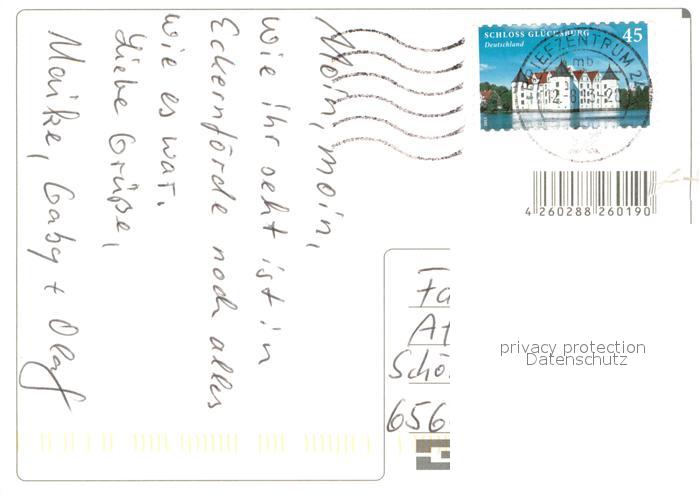 Moin, moin,
wie ihr seht ist in
Eckernförde noch alles
wie es war.
Liebe Grüße,
Maike, Gaby + Olaf
SCHLOSS GLÜCKSBURG 45
Deutschland
BRIEFZENTRUM 2
mb
4 260288 260190
Fa
At
Schö
656
privacy protection
Datenschutz